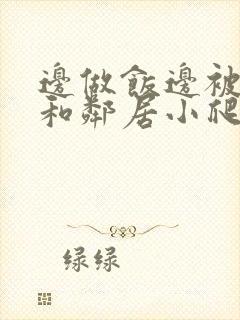 邊做飯邊被
和鄰居小爬
绿绿